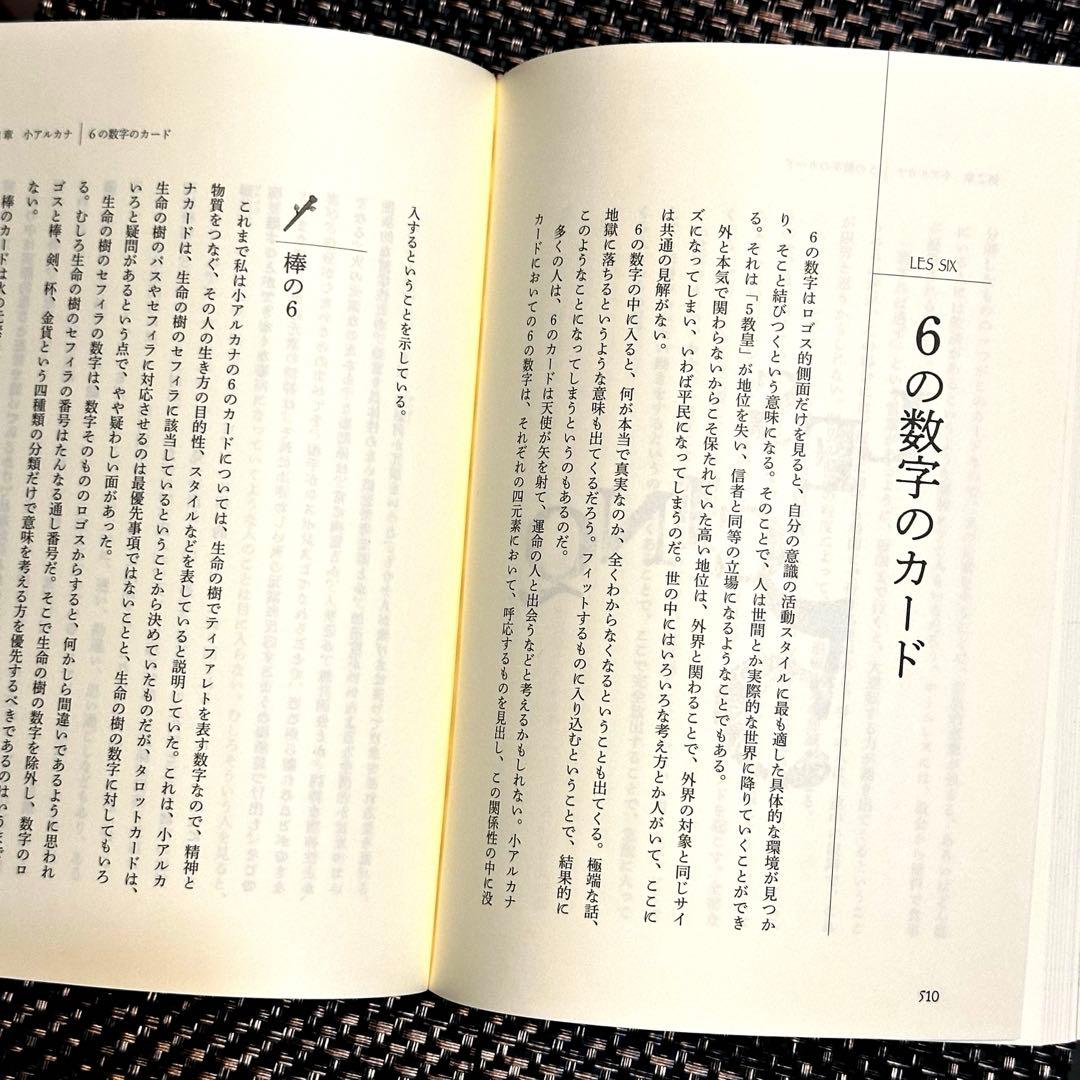 LES SIX
6の数字のカード
6の数字はロゴス的側面だけを見ると、自分の意識の活動スタイルに最も適した具体的な環境が見つか
り、そこと結びつくという意味になる。そのことで、人は世間とか実際的な世界に降りていくことができ
る。それは「5教皇」が地位を失い、信者と同等の立場になるようなことでもある。
外と本気で関わらないからこそ保たれていた高い地位は、外界と関わることで、外界の対象と同じサイ
ズになってしまい、いわば平民になってしまうのだ。世の中にはいろいろな考え方とか人がいて、ここに
は共通の見解がない。
6の数字の中に入ると、何が本当で真実なのか、全くわからなくなるということも出てくる。極端な話、
地獄に落ちるというような意味も出てくるだろう。フィットするものに入り込むということで、結果的に
このようなことになってしまうというのもあるのだ。
多くの人は、6のカードは天使が矢を射て、運命の人と出会うなどと考えるかもしれない。小アルカナ
カードにおいての6の数字は、それぞれの四元素において、呼応するものを見出し、この関係性の中に没
510
章 小アルカナ│6の数字のカード
入するということを示している。
棒の6
これまで私は小アルカナの6のカードについては、生命の樹でティファレトを表す数字なので、精神と
物質をつなぐ、その人の生き方の目的性、スタイルなどを表していると説明していた。これは、小アルカ
ナカードは、生命の樹のセフィラに該当しているということから決めていたものだが、タロットカードは、
生命の樹のパスやセフィラに対応させるのは最優先事項ではないことと、生命の樹の数字に対してもいろ
いろと疑問があるという点で、やや疑わしい面があった。
生命の樹のセフィラの数字は、数字そのもののロゴスからすると、何かしら間違いであるように思われ
る。むしろ生命の樹のセフィラの番号はたんなる通し番号だ。そこで生命の樹の数字を除外し、数字のロ
ゴスと棒、剣、杯、金貨という四種類の分類だけで意味を考える方を優先するべきであるのはいうまで
ない。
棒のカードは火の元素